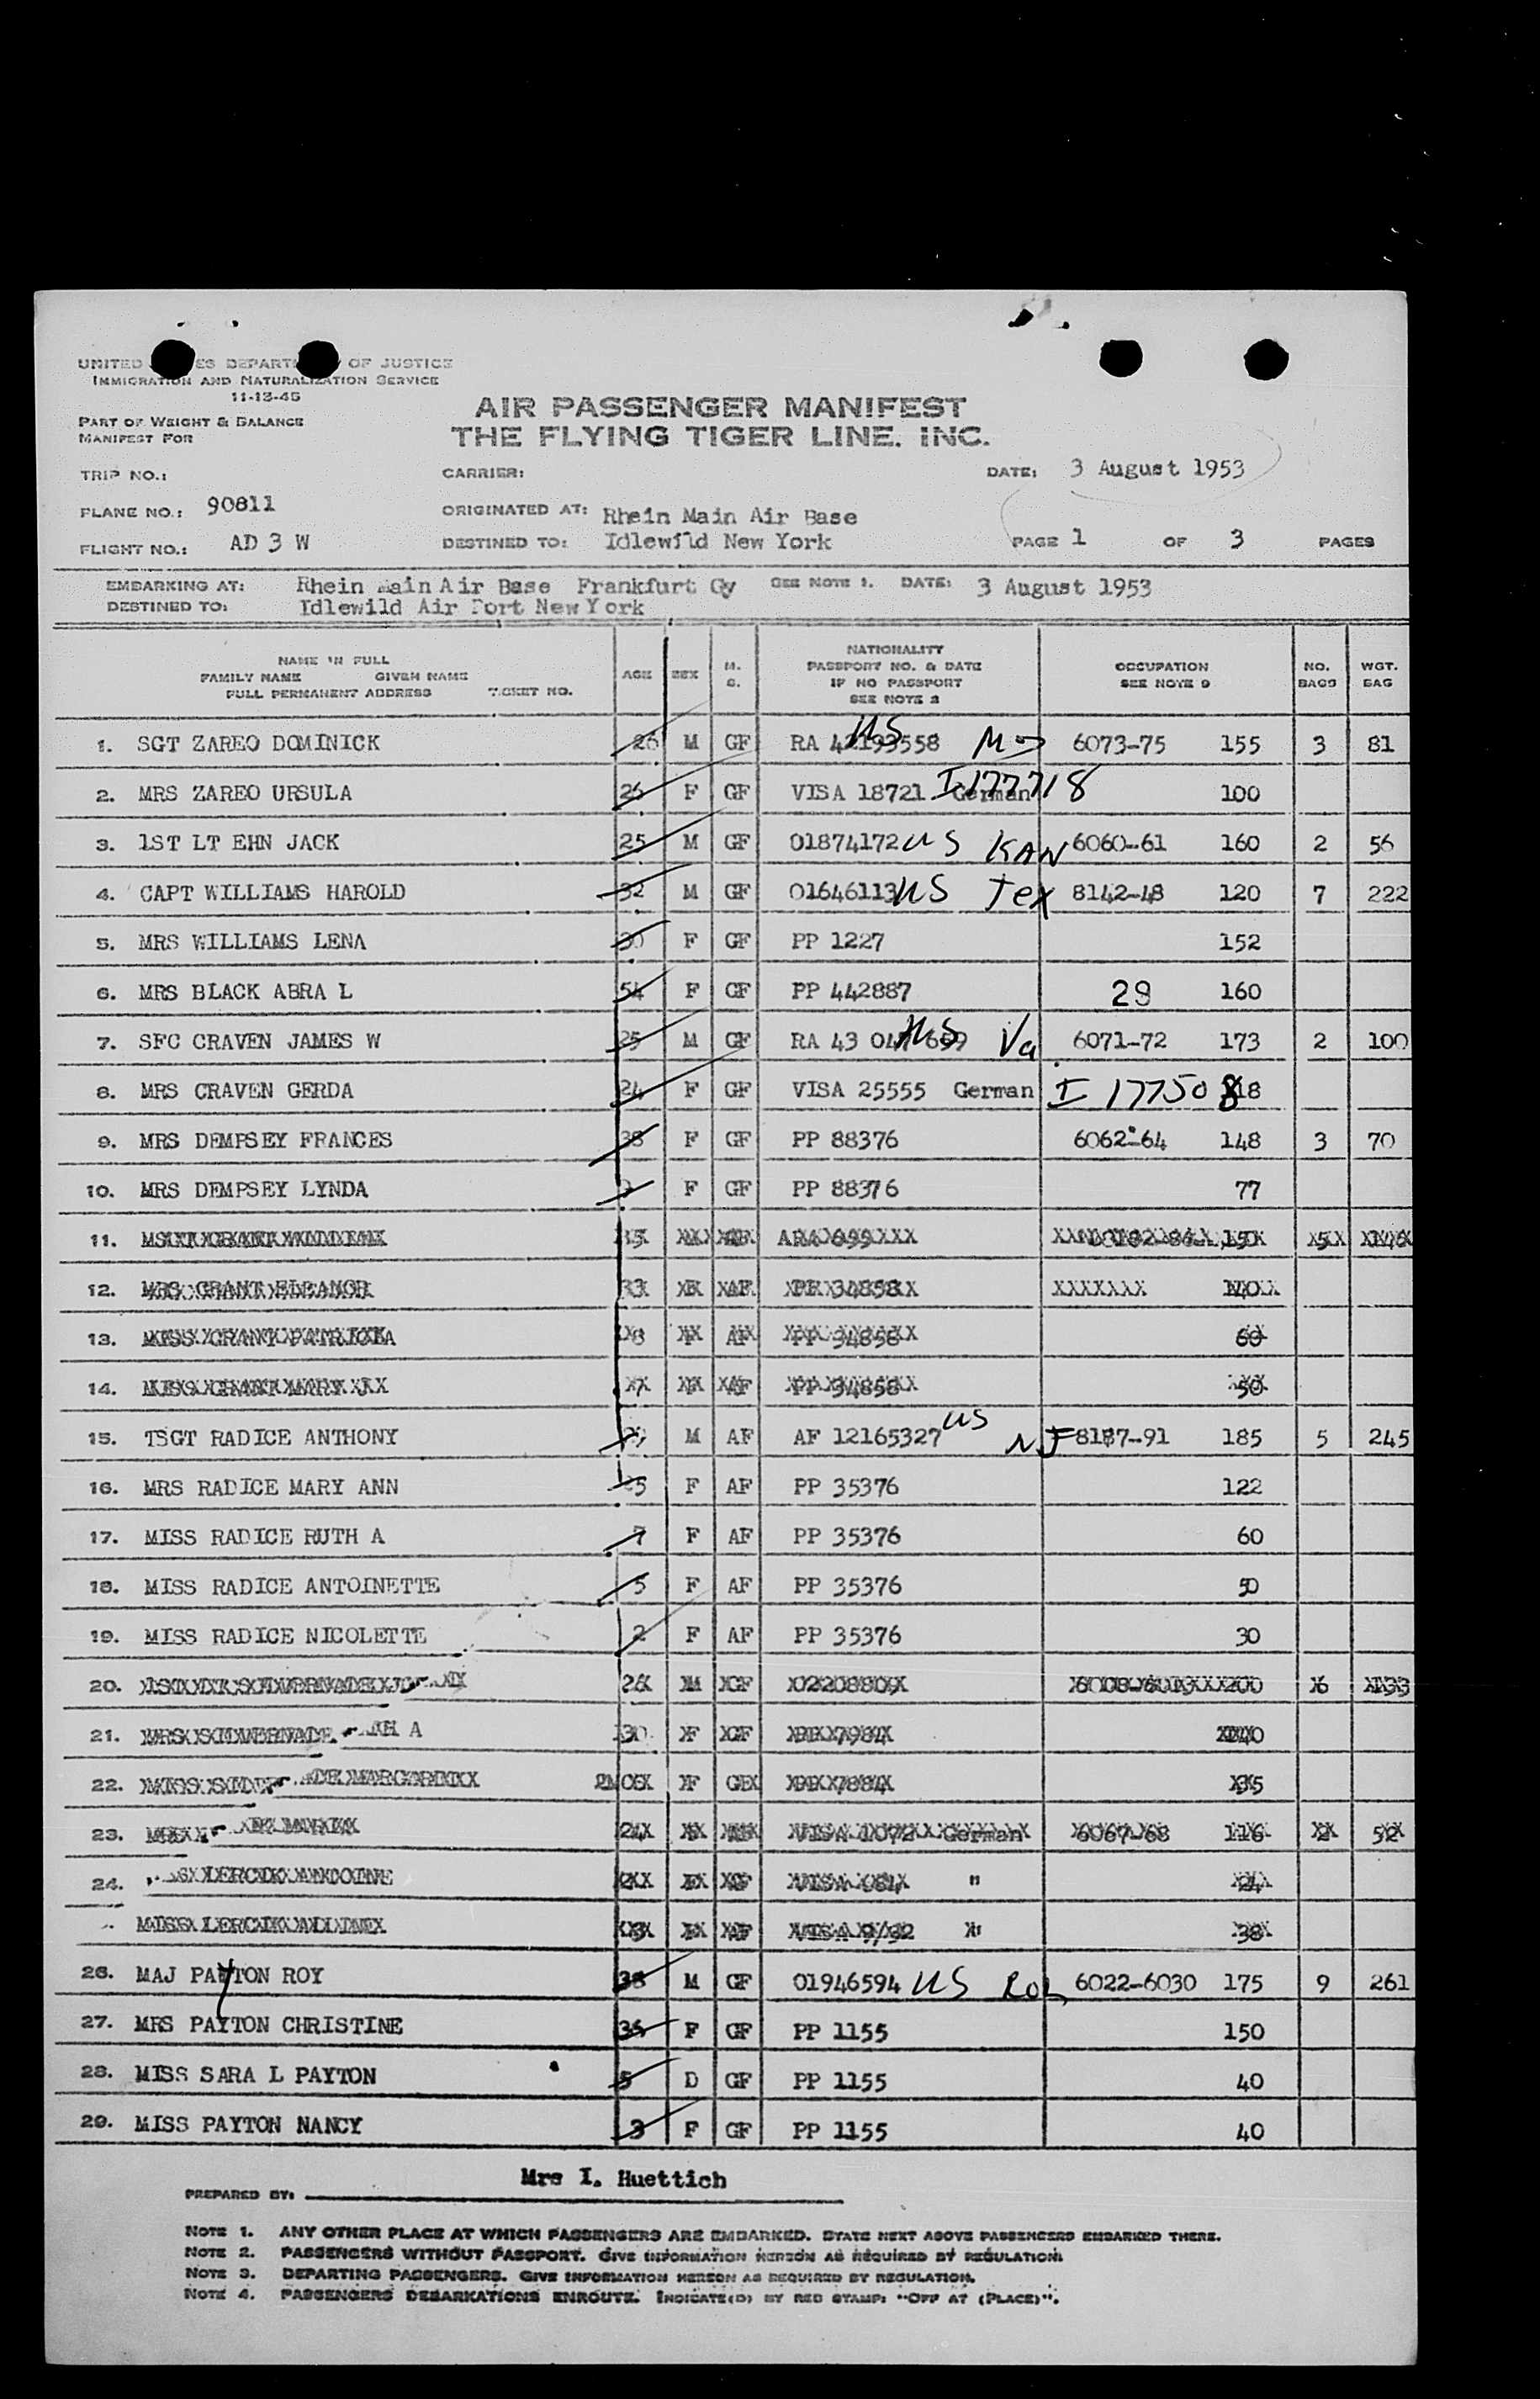 UNITED ES DEPART OF JUSTICE
IMMIGRATION AND NATURALIZATION SERVICE
11-13-45
PART OF WEIGHT & BALANCE
MANIFEST FOR
AIR PASSENGER MANIFEST
THE FLYING TIGER LINE. INC.
TRIP NO.: CARRIER: DATE: 3 August 1953
PLANE NO.: 90811 ORIGINATED AT: Rhein Main Air Base
FLIGHT NO.: AD 3 W DESTINED TO: Idlewild New York PAGE 1 OF 3 PAGES
EMBARKING AT: Rhein Main Air Base Frankfurt Gy SEE NOTE 1. DATE: 3 August 1953
DESTINED TO: Idlewild Air Port New York
NAME IN FULL
FAMILY NAME GIVEN NAME
FULL PERMANENT ADDRESS TICKET NO.
AGE SEX M. S.
NATIONALITY
PASSPORT NO. & DATE
IF NO PASSPORT
SEE NOTE 2
OCCUPATION
SEE NOTE 9
NO. BAGS
WGT. BAG
1. SGT ZAREO DOMINICK 26 M GF RA 42193558 US 6073-75 155 3 81
2. MRS ZAREO URSULA 26 F GF VISA 18721 German I177718 100
3. 1ST LT EHN JACK 25 M GF 01874172 US KAN 6060-61 160 2 56
4. CAPT WILLIAMS HAROLD 32 M GF 01646113 US Tex 8142-48 120 7 222
5. MRS WILLIAMS LENA 30 F GF PP 1227 152
6. MRS BLACK ABRA L 54 F GF PP 442887 29 160
7. SFC CRAVEN JAMES W 25 M GF RA 43 US Va 6071-72 173 2 100
8. MRS CRAVEN GERDA 24 F GF VISA 25555 German I 177508 18
9. MRS DEMPSEY FRANCES 38 F GF PP 88376 6062-64 148 3 70
10. MRS DEMPSEY LYNDA F GF PP 88376 77
11.
12. MRS GRANT ELEANOR 33 PP 34858 140
13. MISS GRANT PATRICIA 8 F AF PP 34858 60
14. MISS GRANT MARY 7 F AF PP 34858 50
15. TSGT RADICE ANTHONY M AF AF 12165327 US NJ 8187-91 185 5 245
16. MRS RADICE MARY ANN F AF PP 35376 122
17. MISS RADICE RUTH A 7 F AF PP 35376 60
18. MISS RADICE ANTOINETTE 5 F AF PP 35376 50
19. MISS RADICE NICOLETTE 2 F AF PP 35376 30
20. 26 M GF 02208809 200 6 133
21. 30 F GF A
22. F 35
23. 24 German 6067-68 116 2 52
24. "
26. MAJ PAYTON ROY 38 M GF 01946594 US 6022-6030 175 9 261
27. MRS PAYTON CHRISTINE 36 F GF PP 1155 150
28. MISS SARA L PAYTON 5 D GF PP 1155 40
29. MISS PAYTON NANCY 3 F GF PP 1155 40
PREPARED BY: Mrs I. Huettich
NOTE 1. ANY OTHER PLACE AT WHICH PASSENGERS ARE EMBARKED. STATE NEXT ABOVE PASSENGERS EMBARKED THERE.
NOTE 2. PASSENGERS WITHOUT PASSPORT. GIVE INFORMATION HEREON AS REQUIRED BY REGULATION.
NOTE 3. DEPARTING PASSENGERS. GIVE INFORMATION HEREON AS REQUIRED BY REGULATION.
NOTE 4. PASSENGERS DEBARKATIONS ENROUTE. INDICATE(D) BY RED STAMP: "OFF AT (PLACE)".